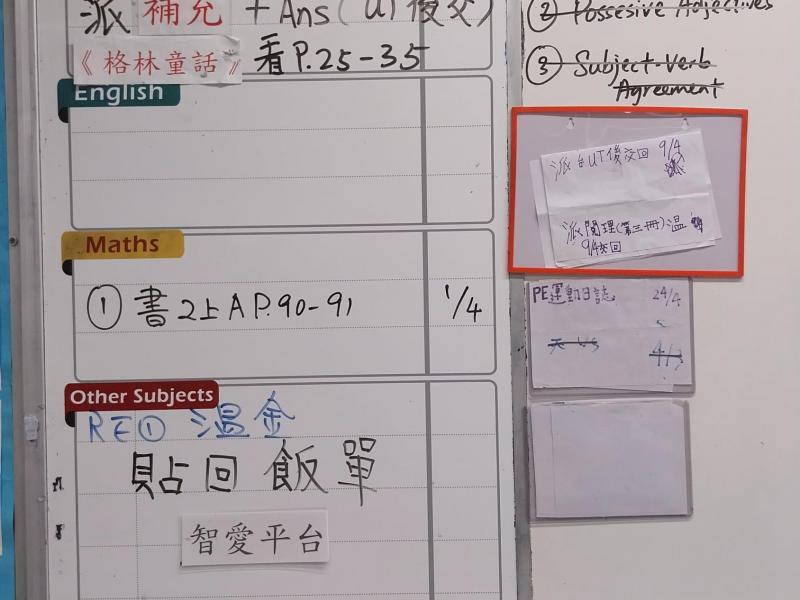 派 補充 + Ans (UT後交)
《格林童話》 看 P.25-35
English
Maths
① 書 2上A P.90-91 1/4
Other Subjects
RE① 温金
貼回飯單
智愛平台
② Possesive Adjectives
③ Subject-Verb
Agreement
派 UT後交回 9/4
派閱理(第三冊)温
9/4交回
PE運動日誌 24/4